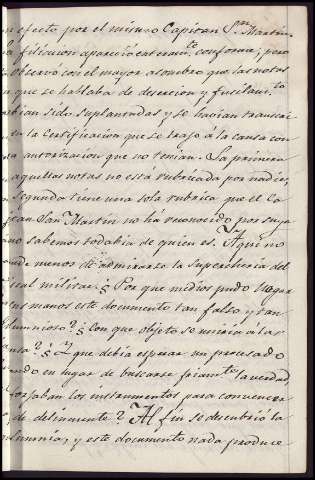 n efecto por el mismo Capitan Sn. Martin
la filiacion aparecio enteram.te conforme; pero
observó con el mayor asombro que las notas
n que se hablaba de desercion y fusilam.to
bian sido suplantadas y se hacian transcri
la certificacion que se trajo á la causa con
autorizacion que no tenian. La primera
aquellas notas no está rubricada por nadie;
segunda tiene una sola rubrica que el Ca
San Martin no há reconocido por suya
no sabemos todabia de quien es. Aqui no
menos admirarse la supercheria del
cal militar. ¿Por que medios pudo llegar
sus manos este documento tan falso y tan
lumnioso? ¿Con que objeto se unia á las
ausa? ¿Y que debia esperar un procesado
ando en lugar de buscarse friam.te la verdad,
forjaban los instrumentos para convencer
de delincuente? Al fin se descubrió la
lumnia, y este documento nada produce